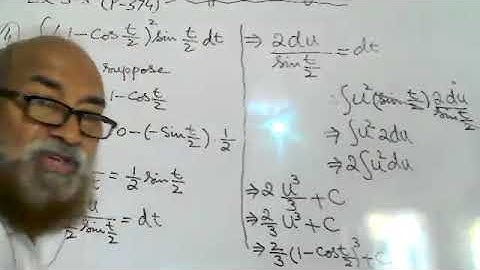 (P-374)
∫(1-Cos t/2)² sin t/2 dt
suppose
1-Cos t/2
0-(-Sin t/2) · 1/2
= 1/2 sin t/2
sin t/2 = dt
⇒ 2du / sin t/2 = dt
∫u² (sin t/2) 2du / sin t/2
⇒ ∫u² 2du
⇒ 2∫u² du
⇒ 2 u³/3 + C
⇒ 2/3 u³ + C
⇒ 2/3 (1-cos t/2)³ + C